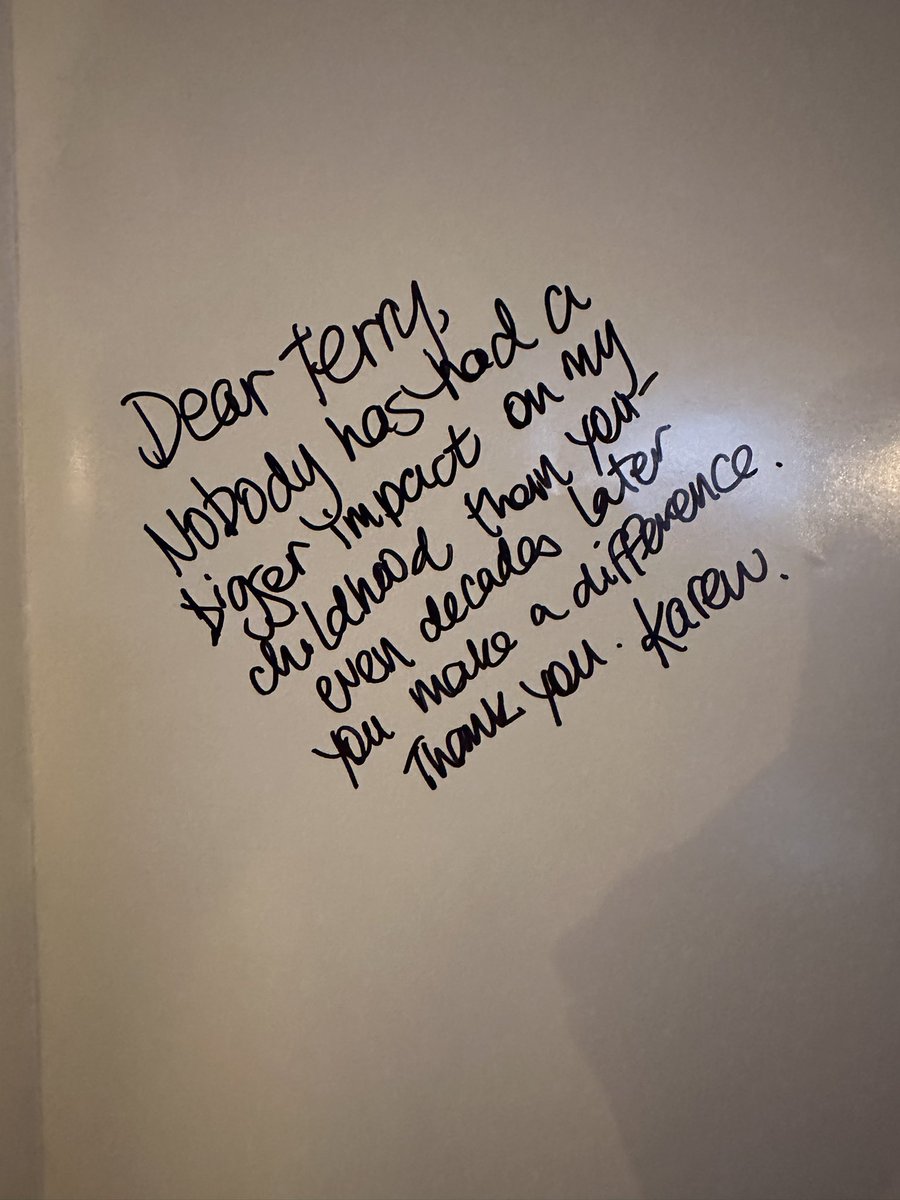 Dear Terry,
Nobody has had a
bigger impact on my
childhood than you-
even decades later
you make a difference.
Thank you. Karen.